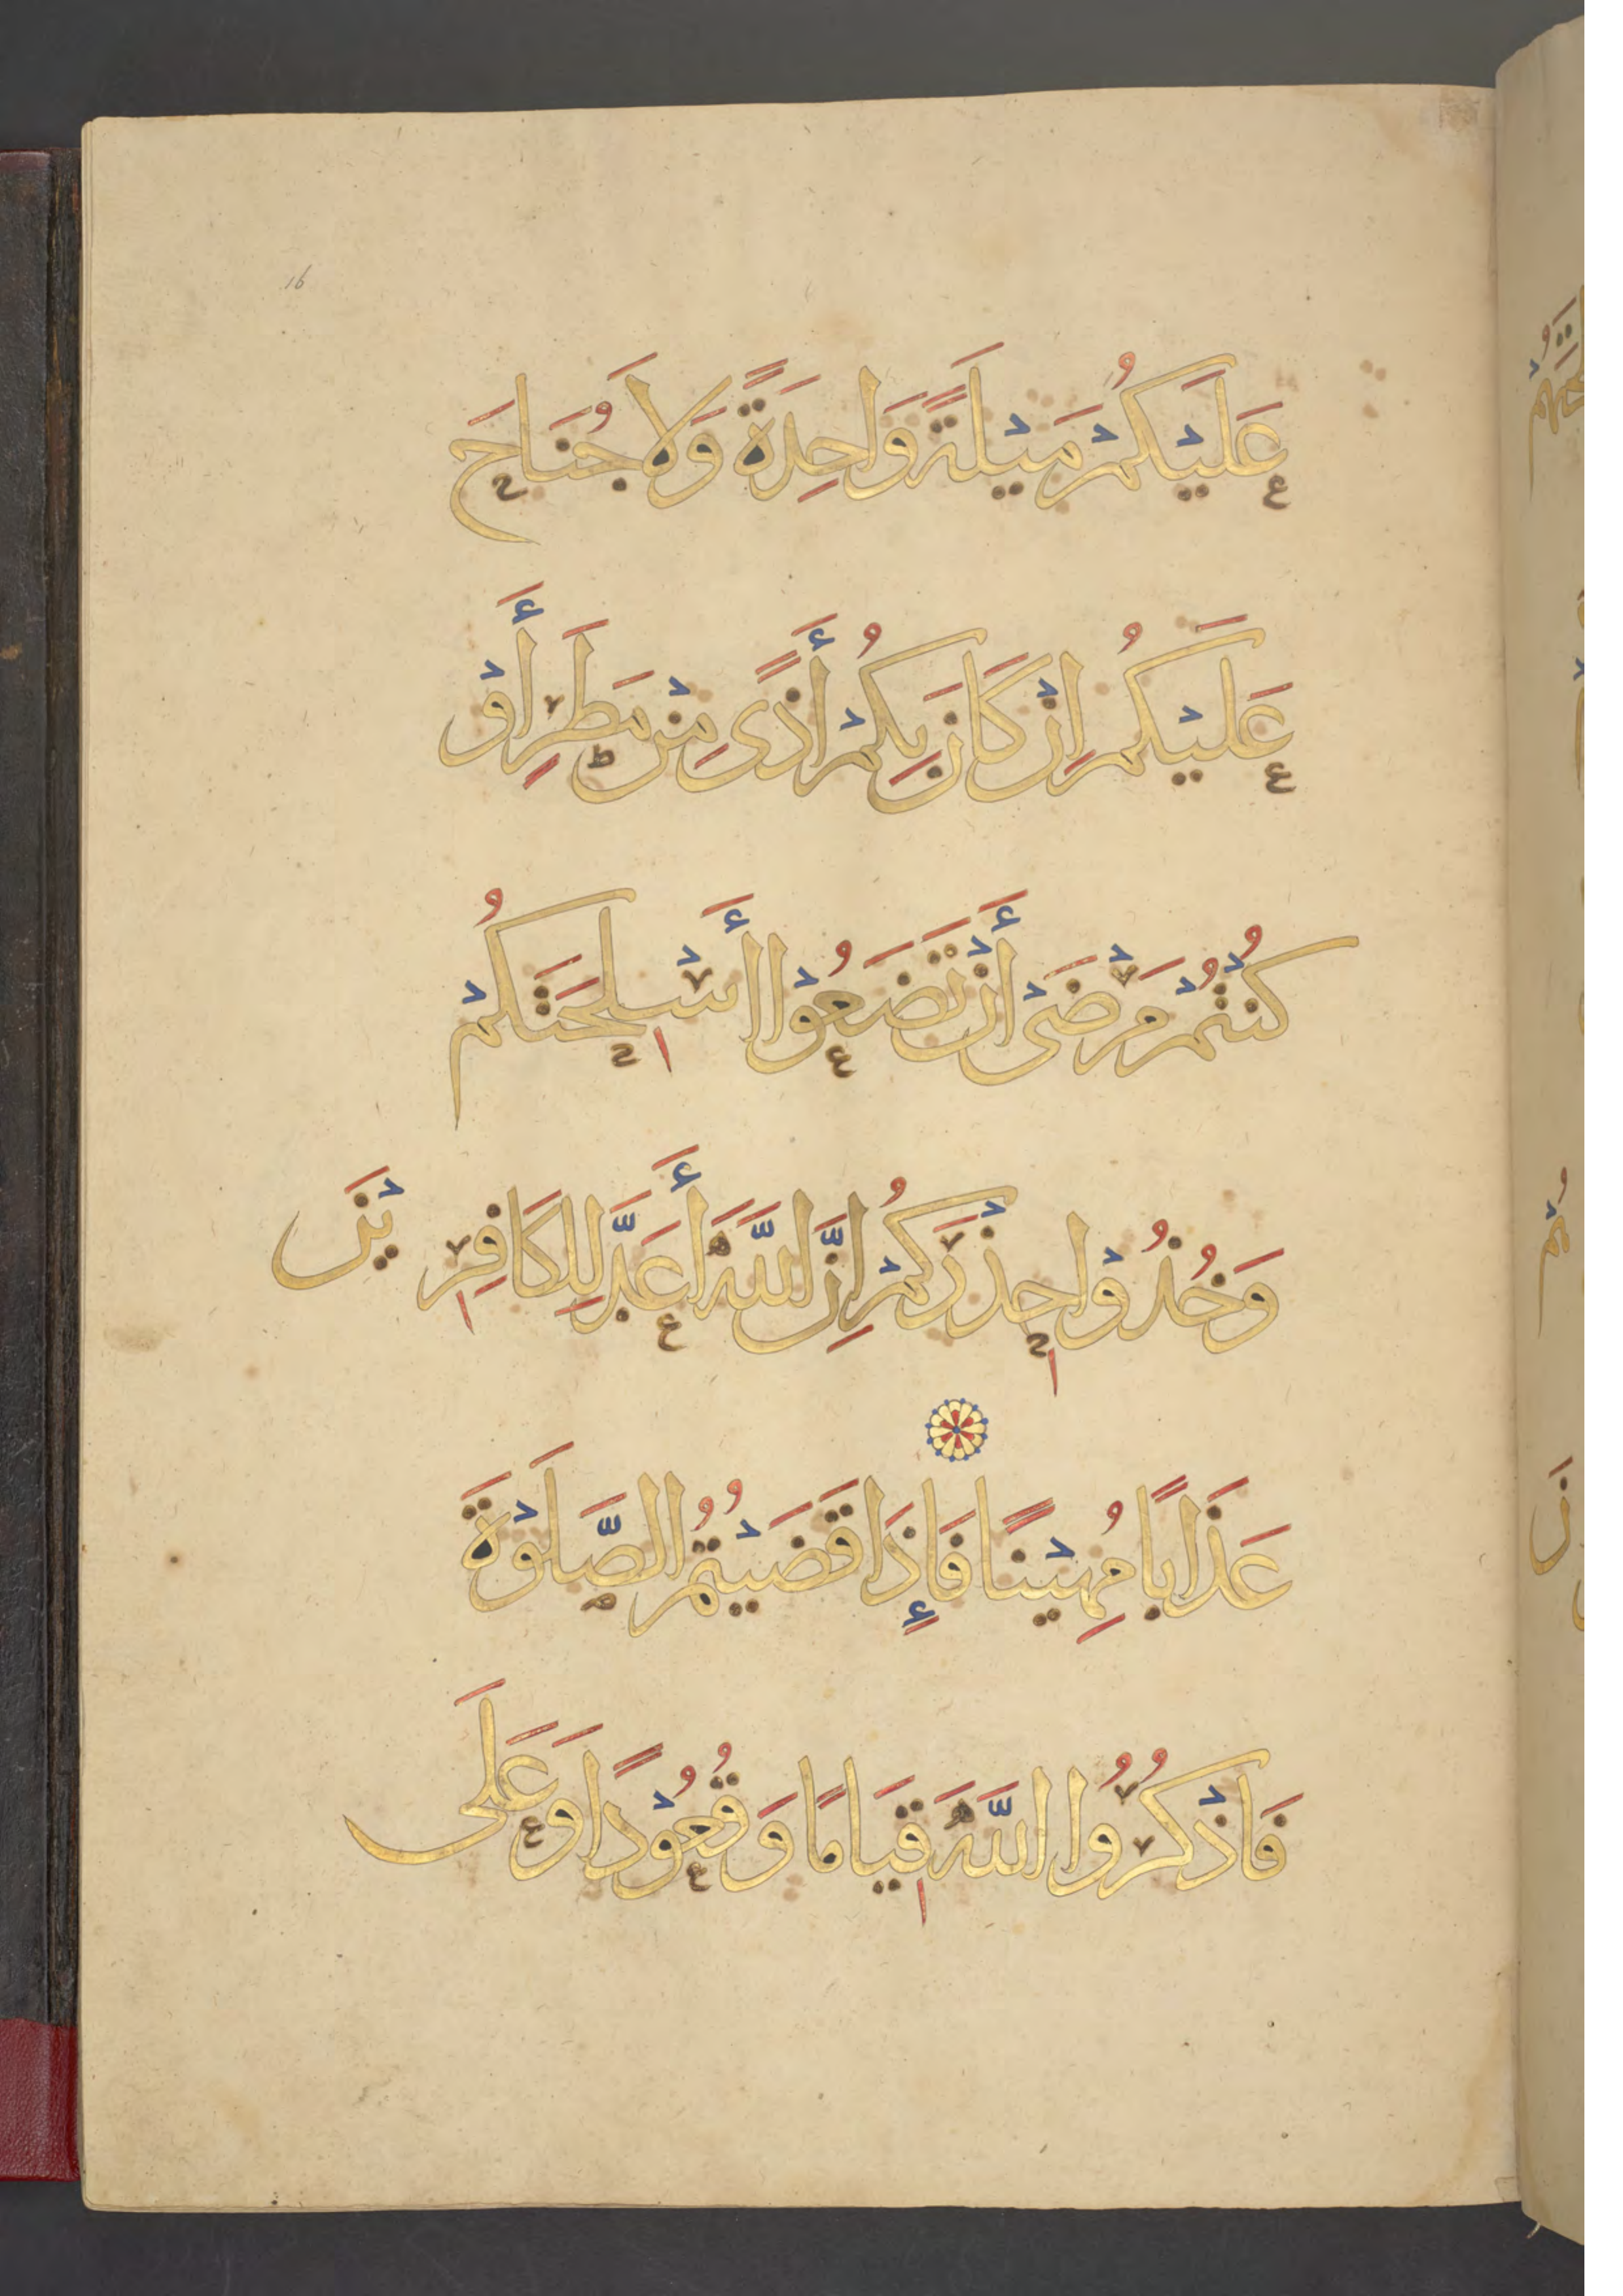 16
عَلَيْكُمْ مَيْلَةً وَاحِدَةً وَلَا جُنَاحَ
عَلَيْكُمْ إِنْ كَانَ بِكُمْ أَذًى مِنْ مَطَرٍ أَوْ
كُنْتُمْ مَرْضَىْ أَنْ تَضَعُوْا أَسْلِحَتَكُمْ
وَخُذُوْا حِذْرَكُمْ إِنَّ اللَّهَ أَعَدَّ لِلْكَافِرِيْنَ
عَذَابًا مُهِيْنًا فَإِذَا قَضَيْتُمُ الصَّلَوْةَ
فَاذْكُرُوا اللَّهَ قِيَامًا وَقُعُوْدًا وَعَلَى